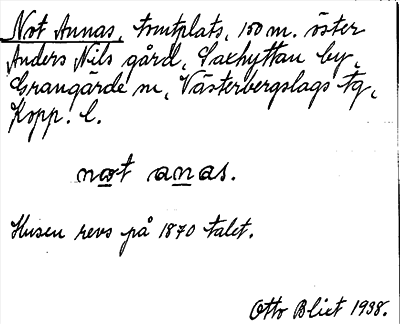 Not Annas, tomtplats, 150 m. öster
Anders Nils gård, Saxhyttan by,
Grangärde sn, Västerbergslags tg,
Kopp. l.
nωt anas.
Husen revs på 1870 talet.
Otto Blixt 1938.